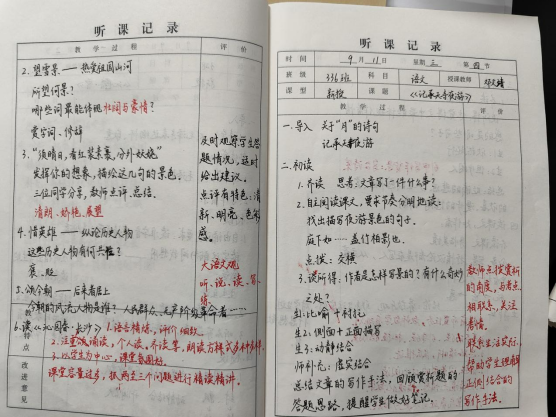 听课记录
教学过程
评价
2.望雪景——热爱祖国山河
所望何景?
哪些词最能体现壮阔与豪情?
赏字词、修辞
3.“须晴日,看红装素裹,分外妖娆”
发挥你的想象,描绘这几句的景色。
三位同学分享,教师点评、总结。
清朗、娇艳、展望
4.惜英雄——纵论历史人物
这些历史人物有何共性?
褒、贬
5.颂今朝——后来者居上
今朝的风流人物是谁?人民群众、无产阶级革命者……
6.读《沁园春·长沙》
及时观察学生答
题情况,适时
给出建议。
点评有特色:清
新、明亮、色彩
感。
大语文观,
听、说、读、写、
教学特点
1.语言精练,评价细致
2.注重诵读,个人读、齐读等,朗读方式多种多样。
3.以学生为中心,课堂氛围好。
改进意见
课堂容量过多,抓两三个问题进行精读精讲。
听课记录
时间
9月11日
星期三
第四节
班级
336班
科目
语文
授课教师
课型
新授
课题
《记承天寺夜游》
教学过程
评价
一.导入 关于“月”的诗句
记承天寺夜游
二.初读
1.齐读 思考:文章写了一件什么事?
2.自主阅读课文,要求节奏分明地读:
找出描写夜游景色的句子。
庭下如……盖竹柏影也。
点拨:交横
3.谈所得:作者是怎样写景的?有什么奇妙
之处?
生1:比喻
生2:侧面+正面描写
生3:动静结合
师补充:虚实结合
总结文章的写作手法,回顾赏析题的
答题思路,提醒学生做好笔记。
教师点拨赏析
的角度,与考点
相联系,关注
考情。
联系生活实际,
帮助学生理解
正侧结合的
写作手法。